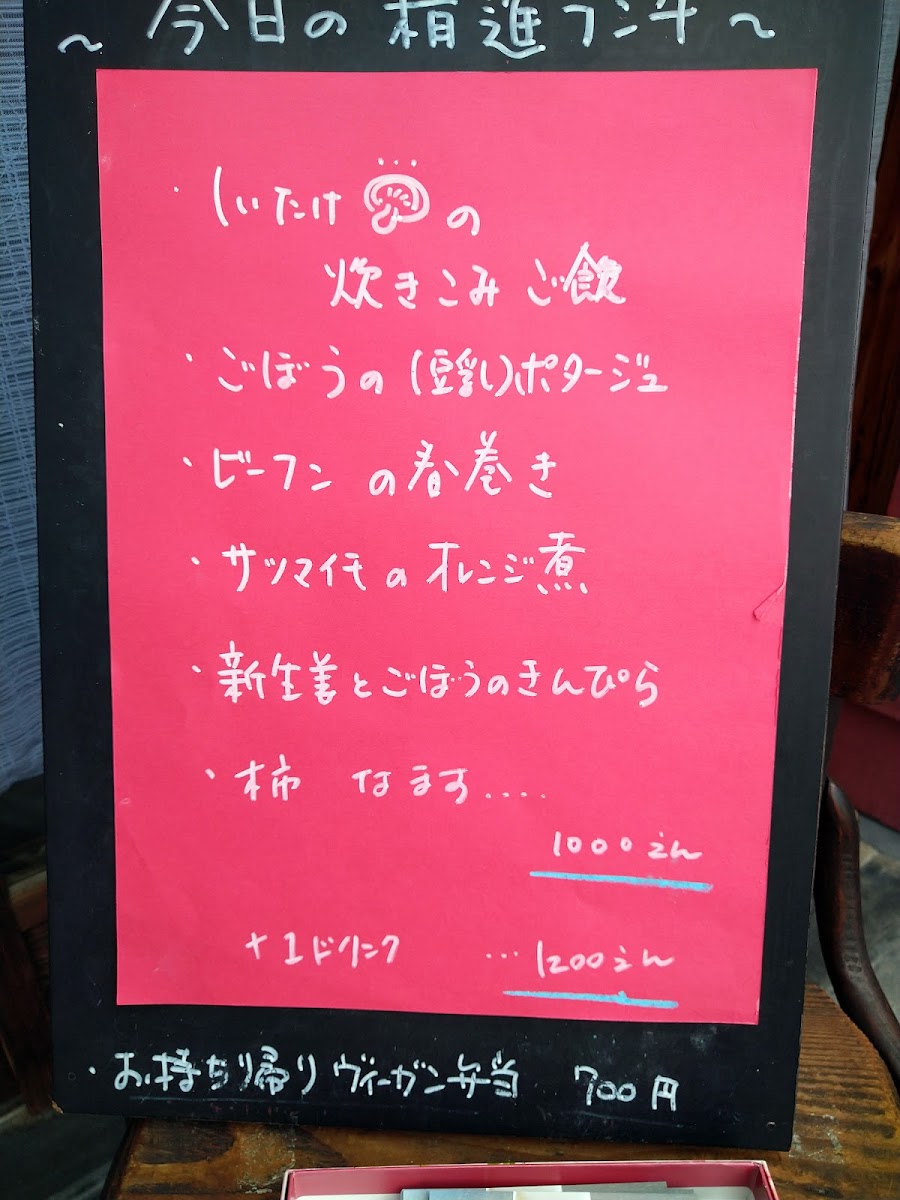 ～ 今日の 精進ランチ ～
・しいたけ の
炊きこみ ご飯
・ごぼうの(豆乳)ポタージュ
・ビーフン の春巻き
・サツマイモ の オレンジ煮
・新生姜とごぼうのきんぴら
・柿 なます....
1000えん
+1ドリンク ...1200えん
・お持ち帰り ヴィーガン弁当 700円